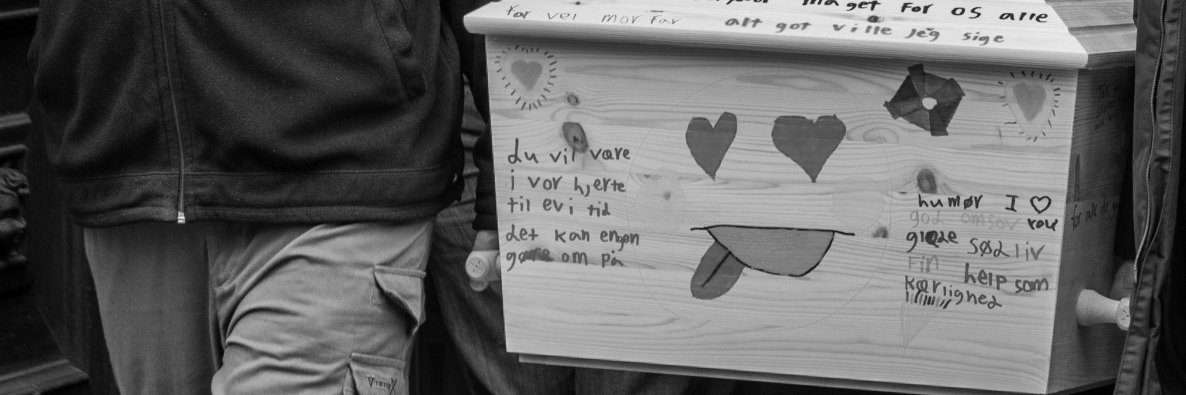 maget for os alle
far vel mor far alt got ville jeg sige
du vil være
i vor hjerte
til evi tid
det kan engen
gøre om på
humør I ♡
god omsov you
glæde sød liv
Fin help som
kærlighed